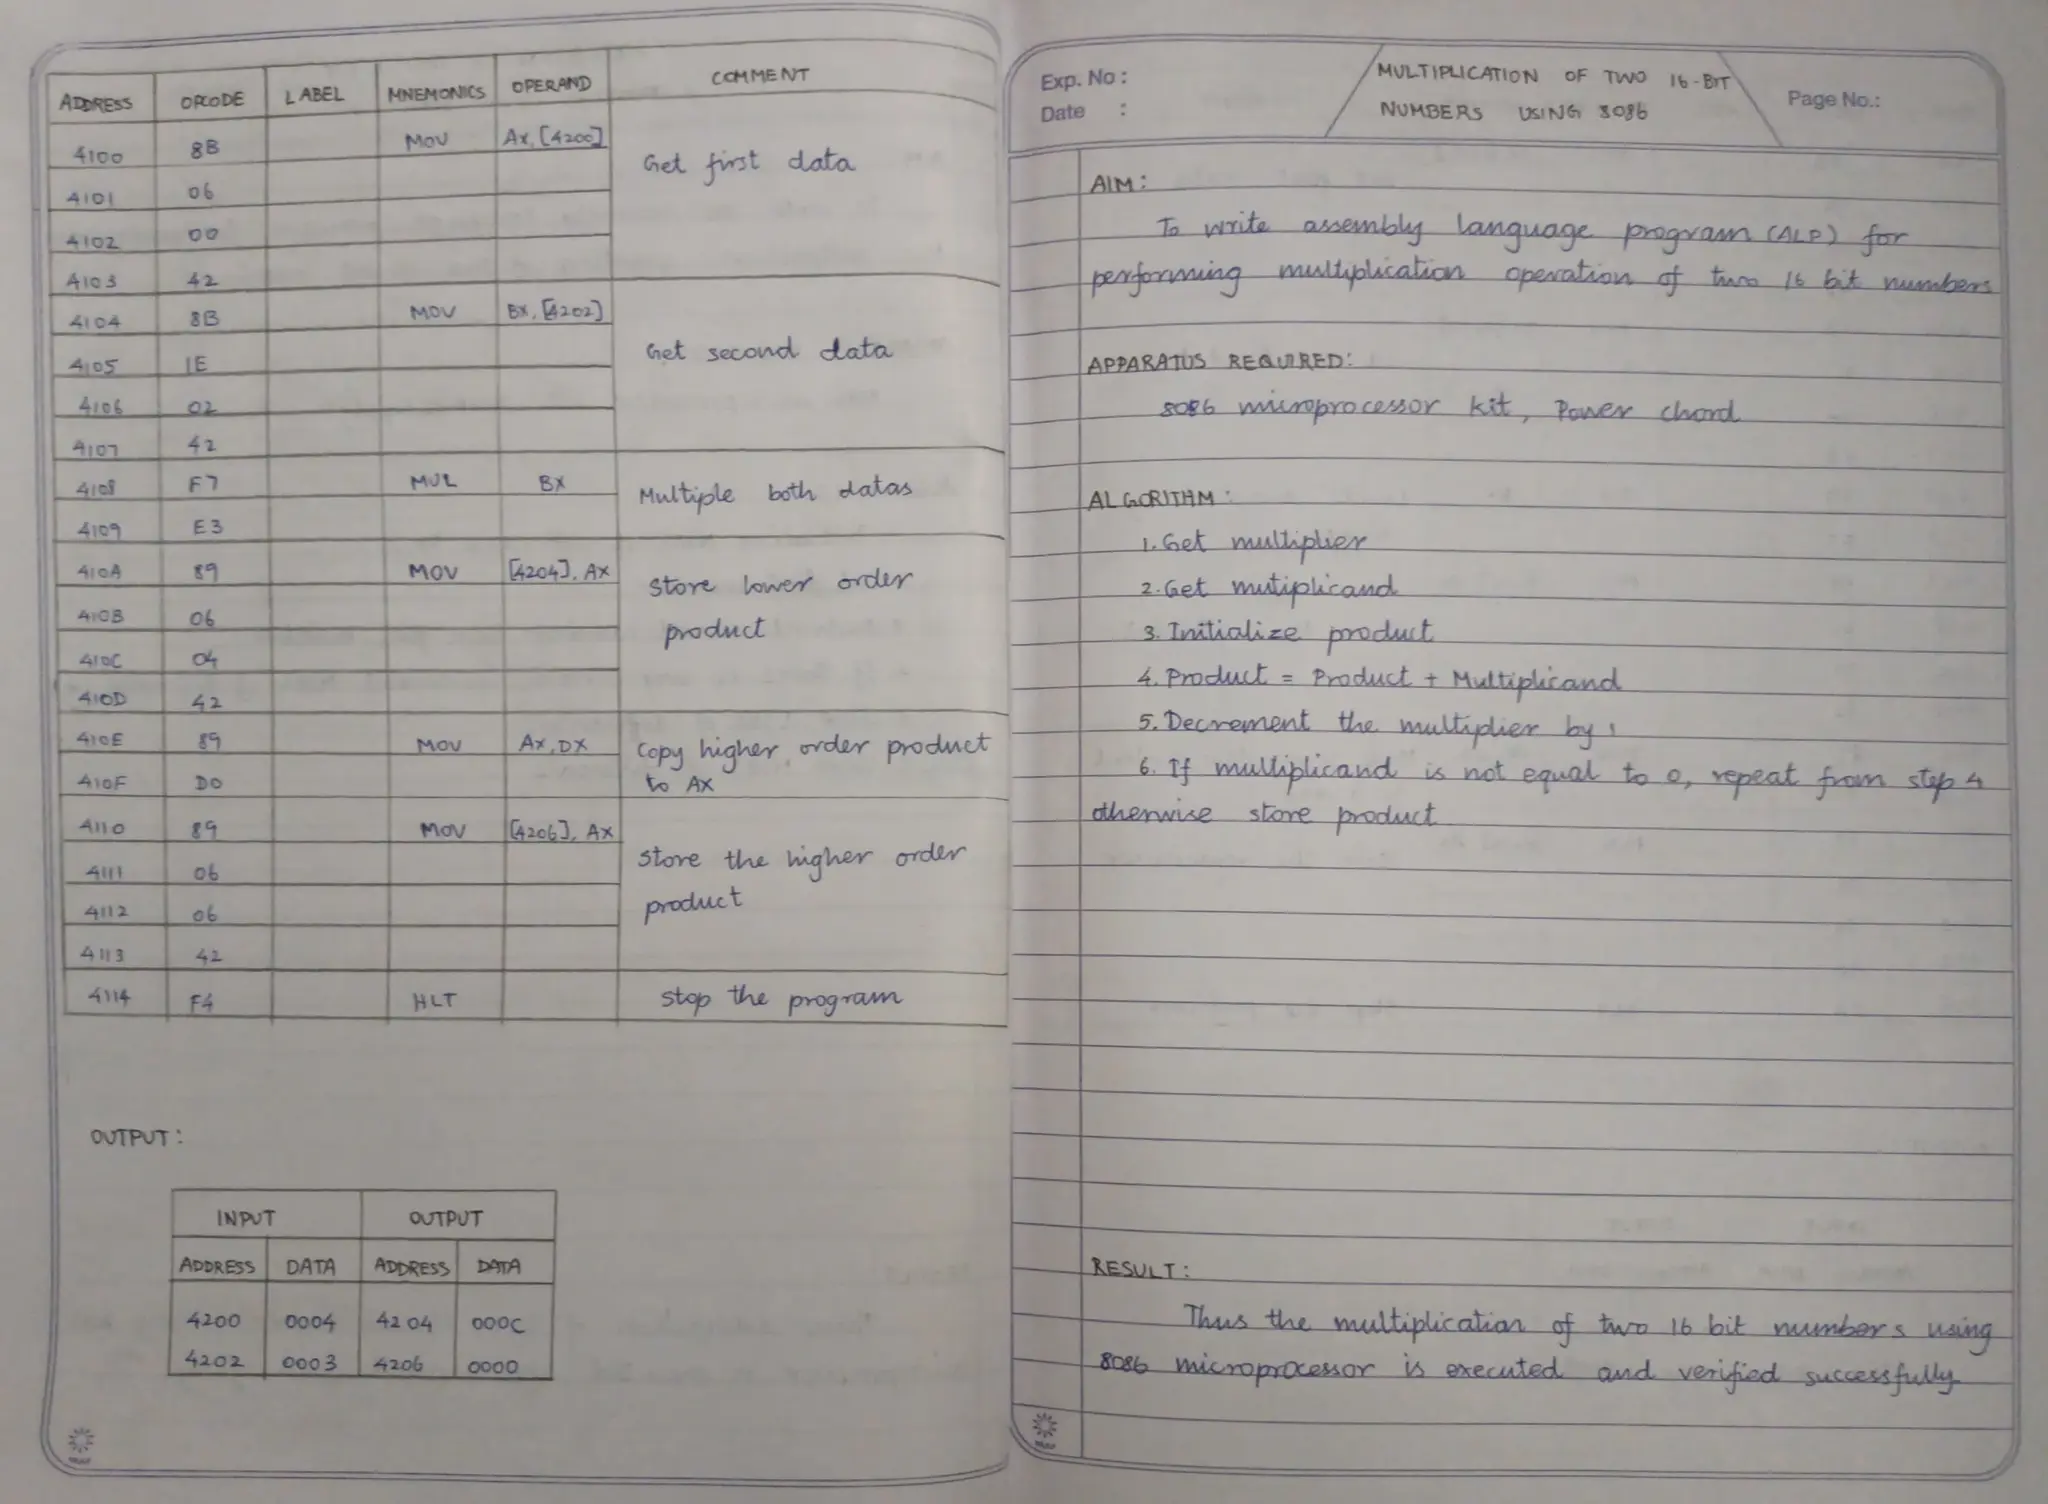 ADDRESS OPCODE LABEL MNEMONICS OPERAND COMMENT
4100 8B MOV AX, [4200] Get first data
4101 06
4102 00
4103 42
4104 8B MOV BX, [4202] Get second data
4105 1E
4106 02
4107 42
4108 F7 MUL BX Multiple both datas
4109 E3
410A 89 MOV [4204], AX Store lower order
410B 06 product
410C 04
410D 42
410E 89 MOV AX, DX Copy higher order product
410F D0 to AX
4110 89 MOV [4206], AX Store the higher order
4111 06 product
4112 06
4113 42
4114 F4 HLT stop the program
OUTPUT:
INPUT OUTPUT
ADDRESS DATA ADDRESS DATA
4200 0004 4204 000C
4202 0003 4206 0000
Exp. No :
Date :
MULTIPLICATION OF TWO 16-BIT
NUMBERS USING 8086
Page No.:
AIM:
To write assembly language program (ALP) for
performing multiplication operation of two 16 bit numbers
APPARATUS REQUIRED:
8086 microprocessor kit, Power chord
ALGORITHM:
1. Get multiplier
2. Get mutiplicand
3. Initialize product
4. Product = Product + Multiplicand
5. Decrement the multiplier by 1
6. If multiplicand is not equal to 0, repeat from step 4
otherwise store product
RESULT:
Thus the multiplication of two 16 bit numbers using
8086 microprocessor is executed and verified successfully